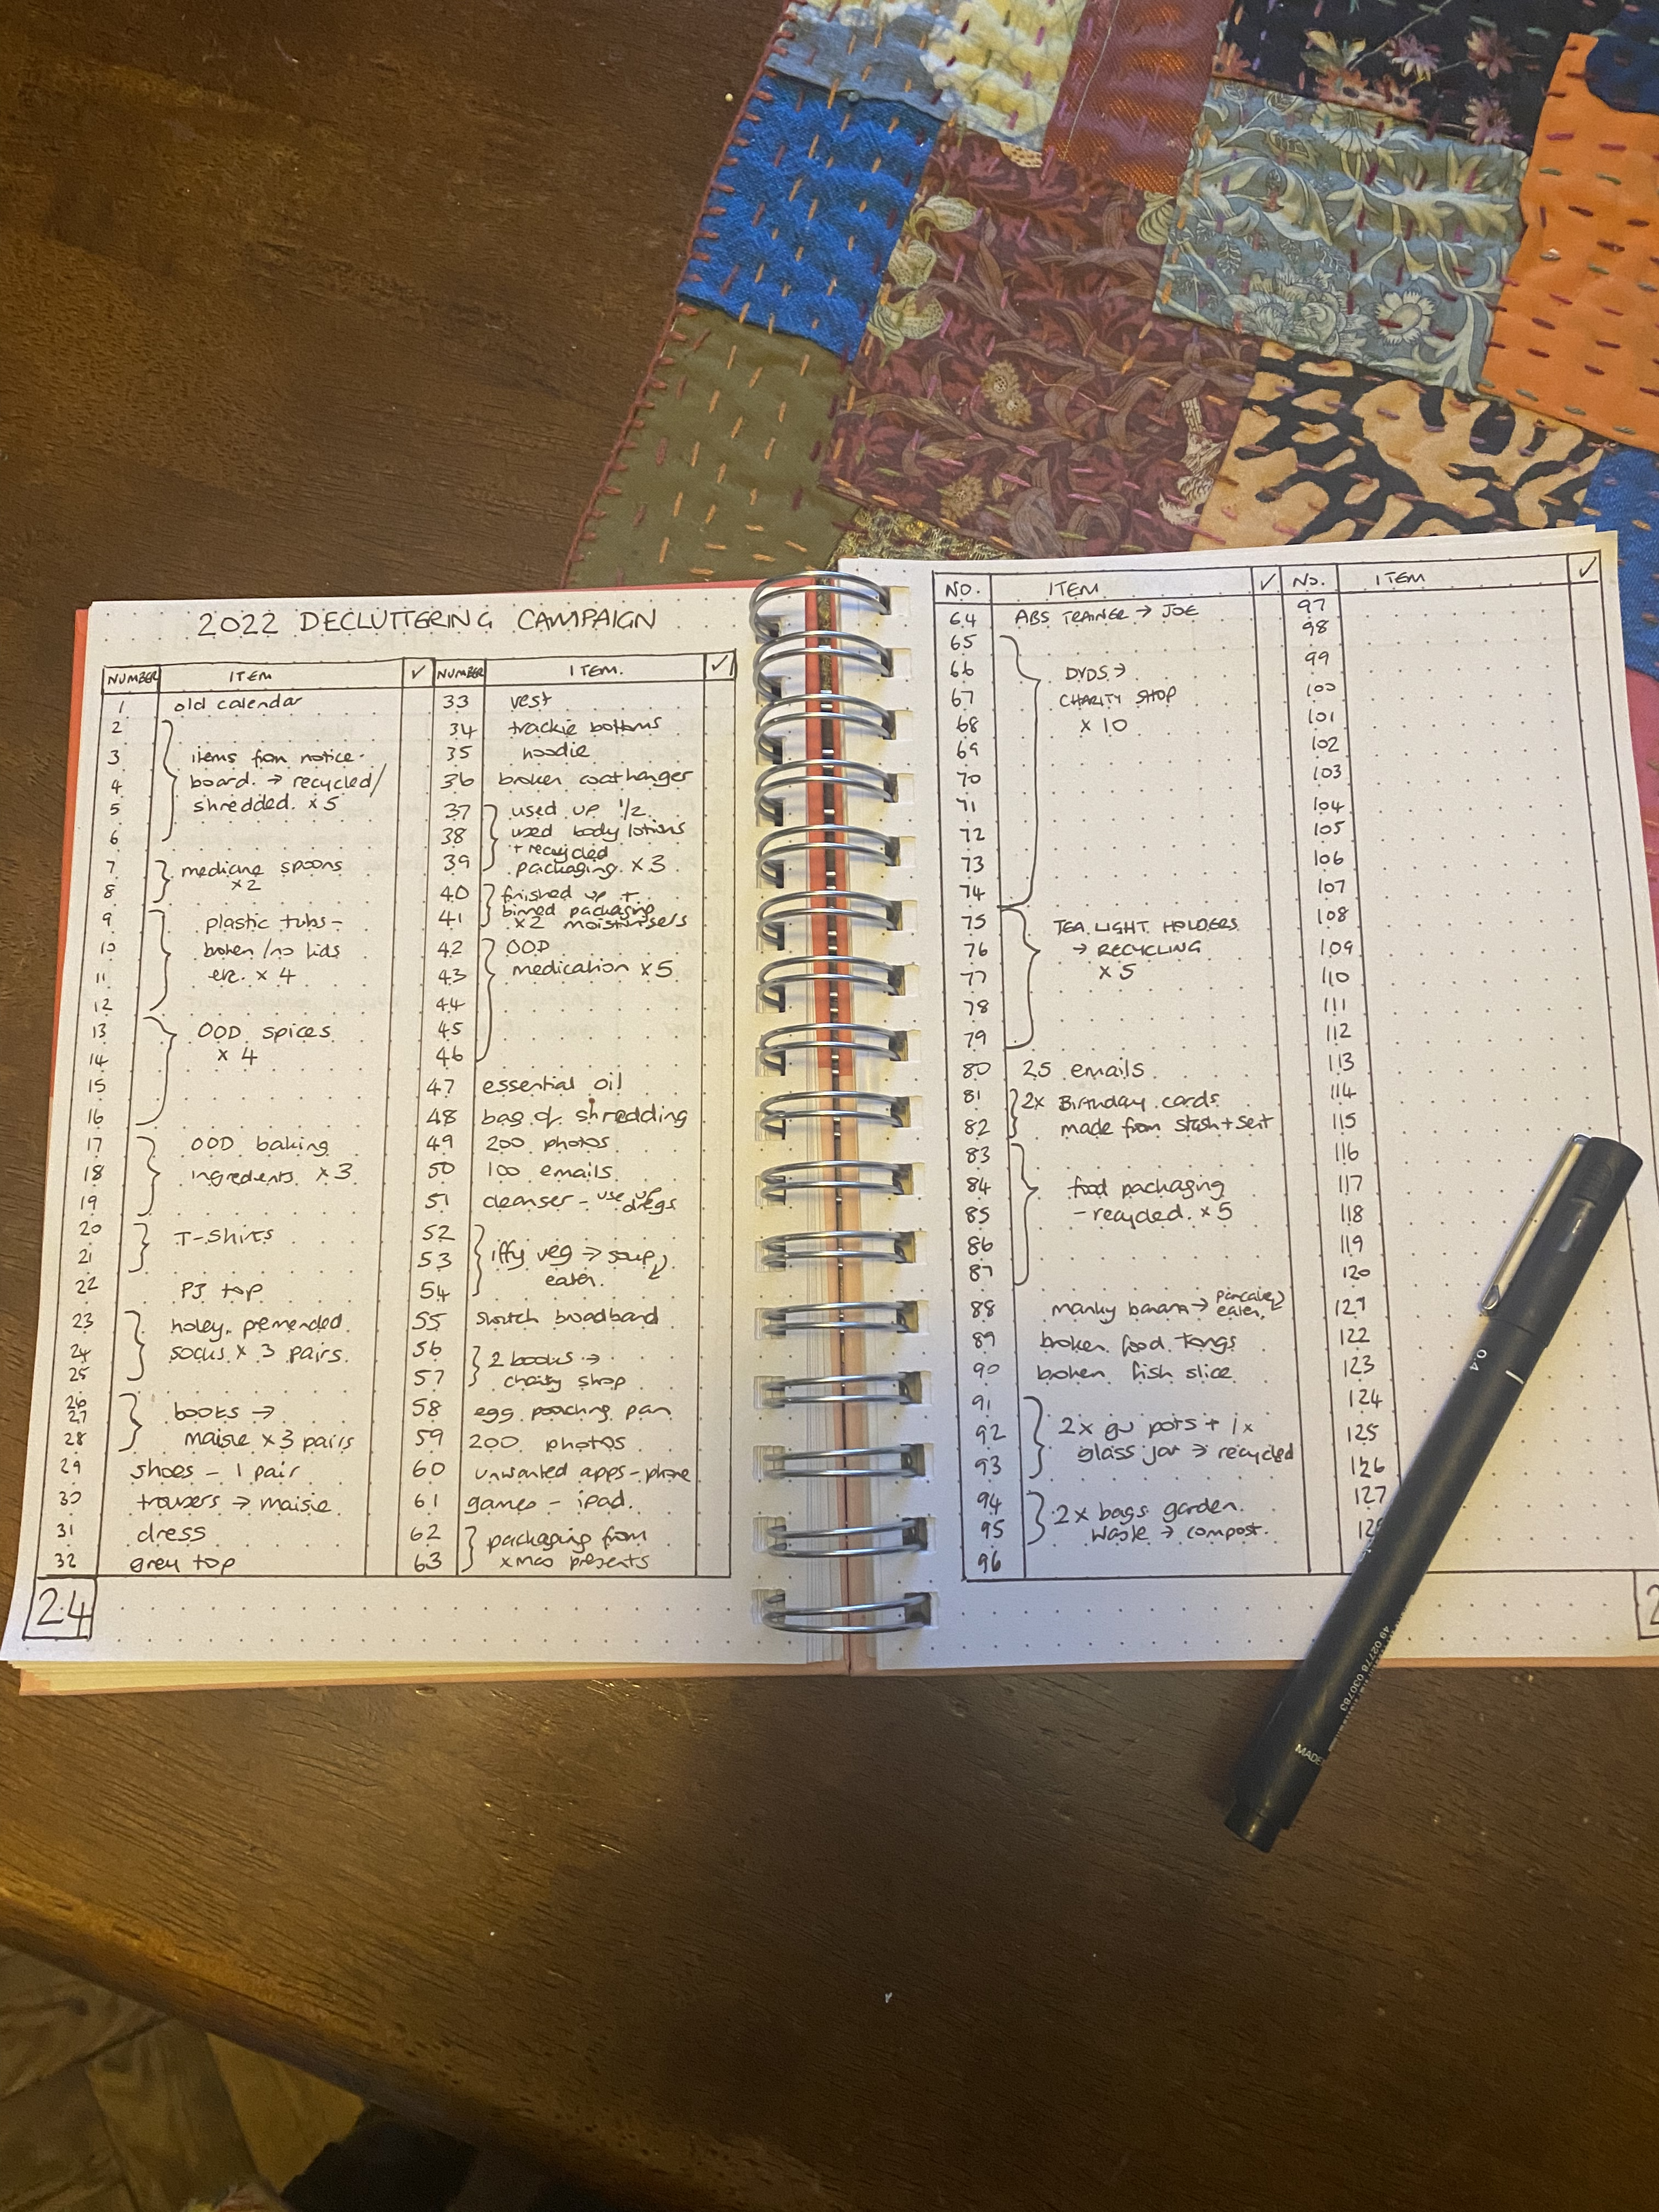 2022 DECLUTTERING CAMPAIGN
NUMBER ITEM ✓
1 old calendar
2
3 items from notice-
4 board → recycled/
5 shredded. x 5
6
7 medicine spoons
8 x2
9 plastic tubs -
10 broken / no lids
11 etc. x 4
12
13 OOD spices
14 x 4
15
16
17 OOD baking
18 ingredients x 3
19
20 T-shirts
21
22 PJ top
23 holey, premended
24 socks x 3 pairs.
25
26
27 books →
28 maisie x 3 pairs
29 shoes - 1 pair
30 trousers → maisie
31 dress
32 grey top
24
NUMBER ITEM. ✓
33 vest
34 trackie bottoms
35 hoodie
36 broken coathanger
37 used up 1/2
38 used body lotions
+ recycled
39 packaging x 3
40 finished up +
41 binned packaging
x2 moisturisers
42 OOD
43 medication x 5
44
45
46
47 essential oil
48 bag of shredding
49 200 photos
50 100 emails
51 cleanser - use up dregs
52
53 iffy veg → soup
54 eaten.
55 switch broadband
56 2 books →
57 charity shop
58 egg poaching pan
59 200 photos
60 unwanted apps - phone
61 games - ipad.
62 packaging from
63 xmas presents
NO. ITEM ✓
64 ABS TRAINER → JOE
65
66 DVDS →
67 CHARITY SHOP
68 x 10
69
70
71
72
73
74
75 TEA LIGHT HOLDERS
76 → RECYCLING
77 x 5
78
79
80 25 emails
81 2x Birthday cards
82 made from stash + sent
83
84 food packaging
85 - recycled. x 5
86
87
88 manky banana → pancake eaten.
89 broken food tongs
90 broken fish slice
91
92 2x gu pots + 1x
93 glass jar → recycled
94 2x bags garden
95 waste → compost.
96
NO. ITEM ✓
97
98
99
100
101
102
103
104
105
106
107
108
109
110
111
112
113
114
115
116
117
118
119
120
121
122
123
124
125
126
127
0.4
49 02778 030783
MADE